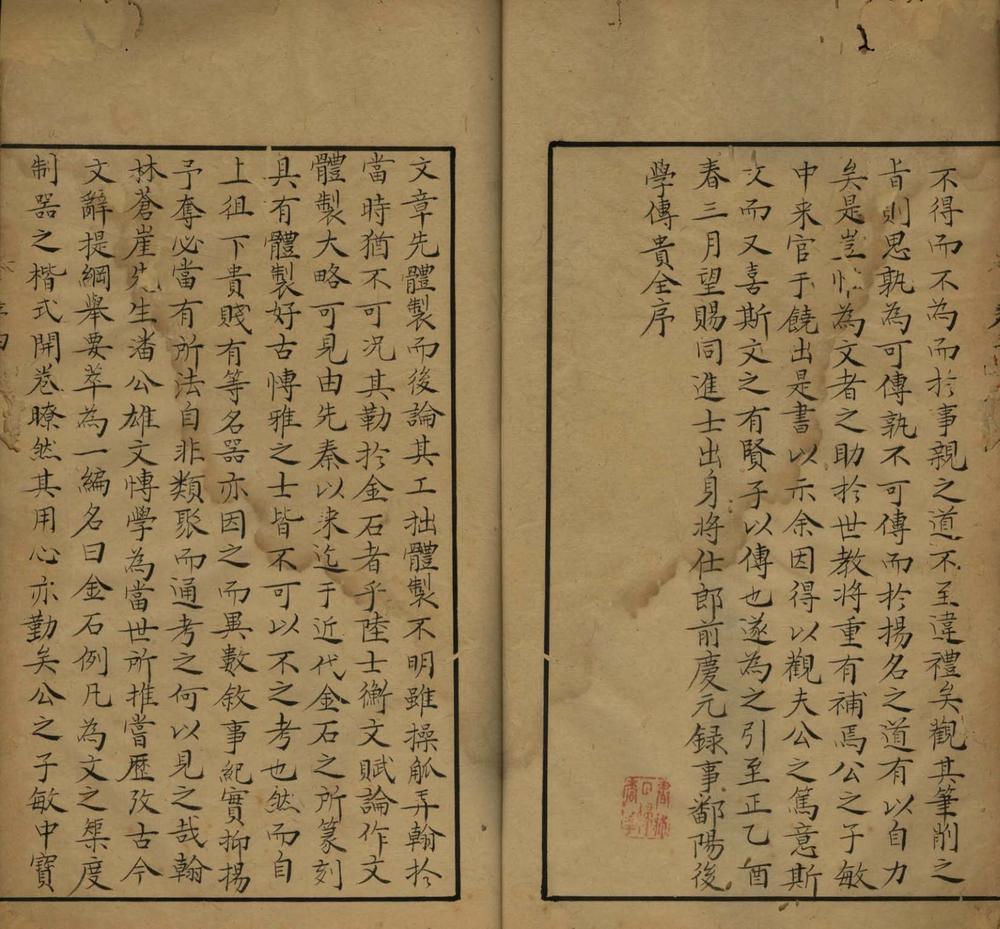 不得而不為而於事親之道不至違禮矣觀其筆削之
旨則思孰為可傳孰不可傳而於揚名之道有以自力
矣是豈惟為文者之助於世教將重有補焉公之子敏
中来官于饒出是書以示余因得以觀夫公之篤意斯
文而又喜斯文之有賢子以傳也遂為之引至正乙酉
春三月望賜同進士出身將仕郎前慶元録事鄱陽後
學傅貴全序
文章先體製而後論其工拙體製不明雖操觚弄翰於
當時猶不可况其勒於金石者乎陸士衡文賦論作文
體製大略可見由先秦以来迄于近代金石之所篆刻
具有體製好古愽雅之士皆不可以不之考也然而自
上徂下貴賤有等名器亦因之而異數敘事紀實抑揚
予奪必當有所法自非類聚而通考之何以見之哉翰
林蒼崖先生潘公雄文愽學為當世所推嘗歴攷古今
文辭提綱舉要萃為一編名曰金石例凡為文之榘度
制器之楷式開卷瞭然其用心亦勤矣公之子敏中寶